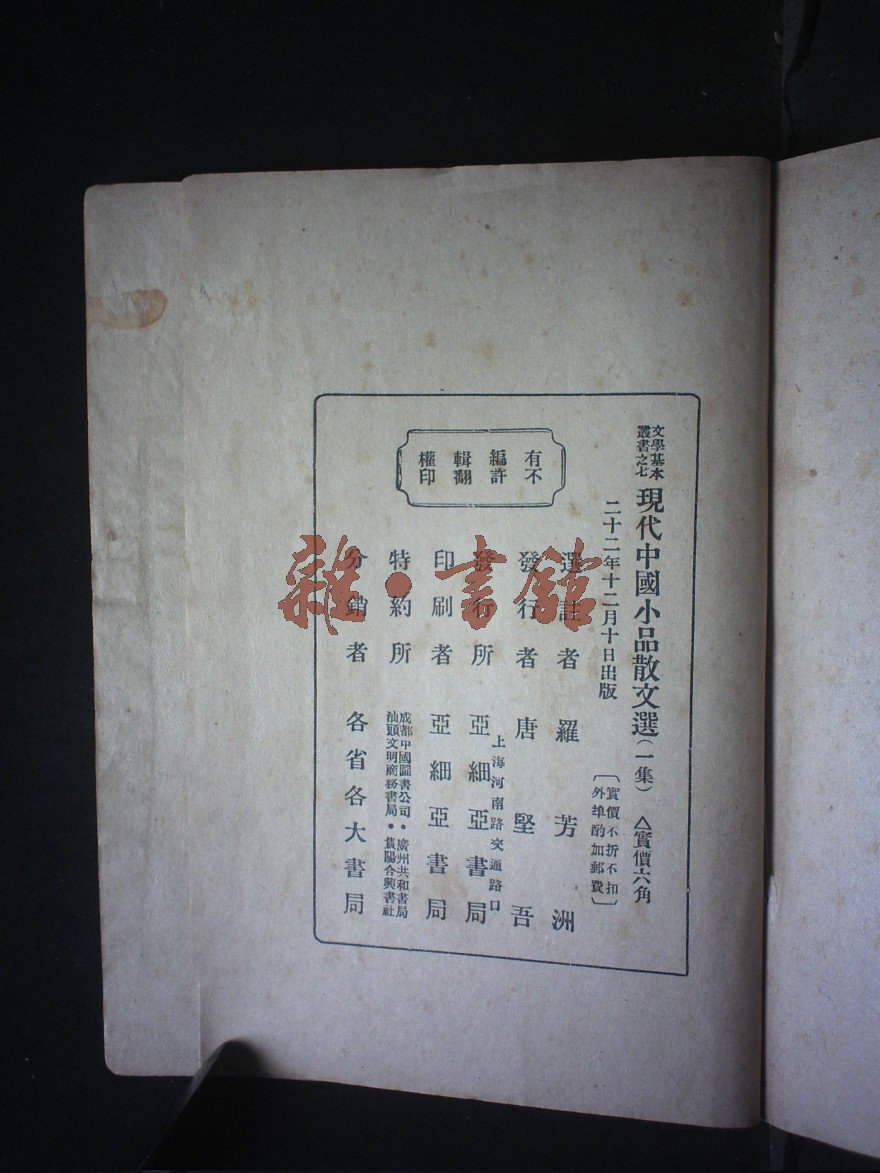 文學基本
叢書之七
現代中國小品散文選(一集)
△實價六角
二十二年十二月十日出版
〔實價不折不扣
外埠酌加郵費〕
選註者 羅芳洲
發行者 唐堅吾
上海河南路交通路口
發行所 亞細亞書局
印刷者 亞細亞書局
特約所
成都中國圖書公司·廣州共和書局
汕頭文明商務書局·貴陽合興書社
分銷者 各省各大書局
有不
編許
輯翻
權印
雜·書館